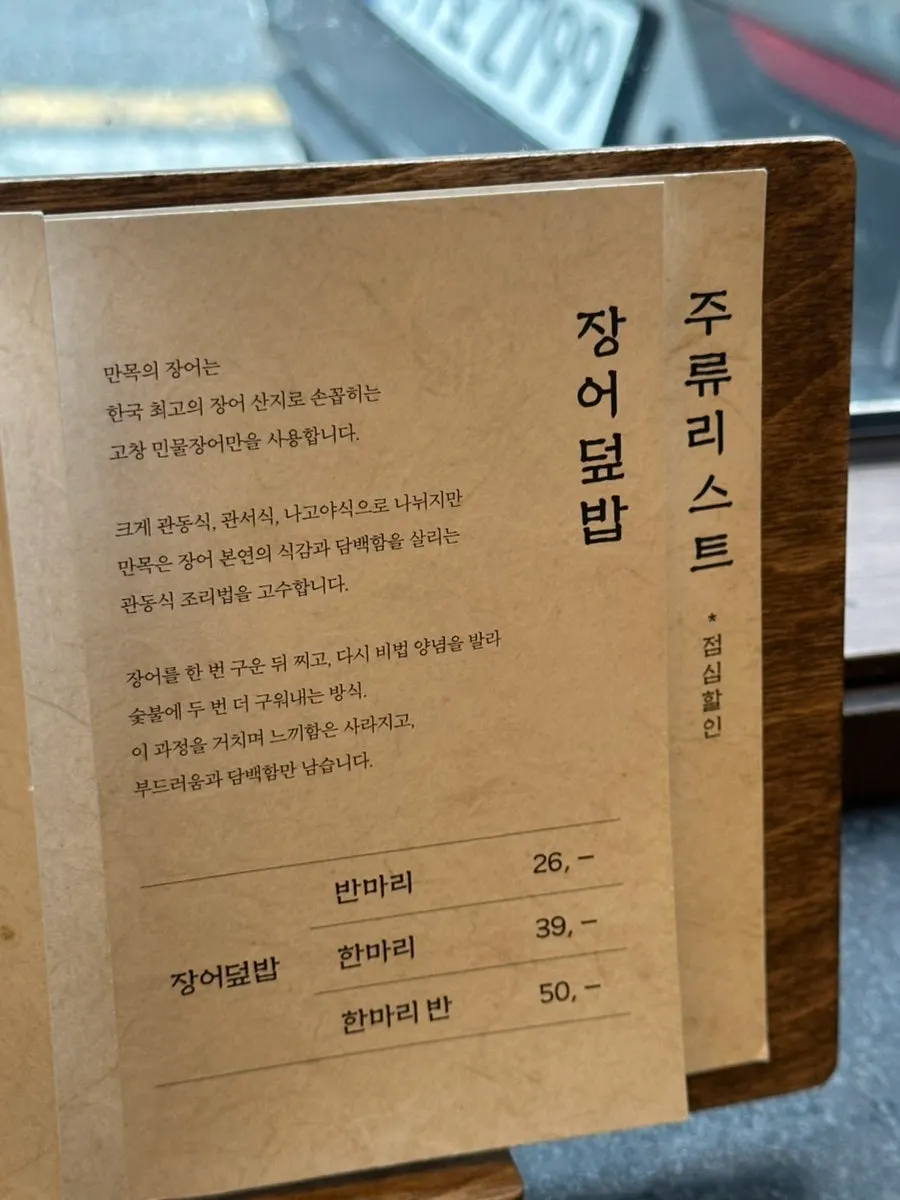 장어덮밥
만목의 장어는
한국 최고의 장어 산지로 손꼽히는
고창 민물장어만을 사용합니다.
크게 관동식, 관서식, 나고야식으로 나뉘지만
만목은 장어 본연의 식감과 담백함을 살리는
관동식 조리법을 고수합니다.
장어를 한 번 구운 뒤 찌고, 다시 비법 양념을 발라
숯불에 두 번 더 구워내는 방식.
이 과정을 거치며 느끼함은 사라지고,
부드러움과 담백함만 남습니다.
장어덮밥
반마리 26,–
한마리 39,–
한마리 반 50,–
주류리스트 *점심할인